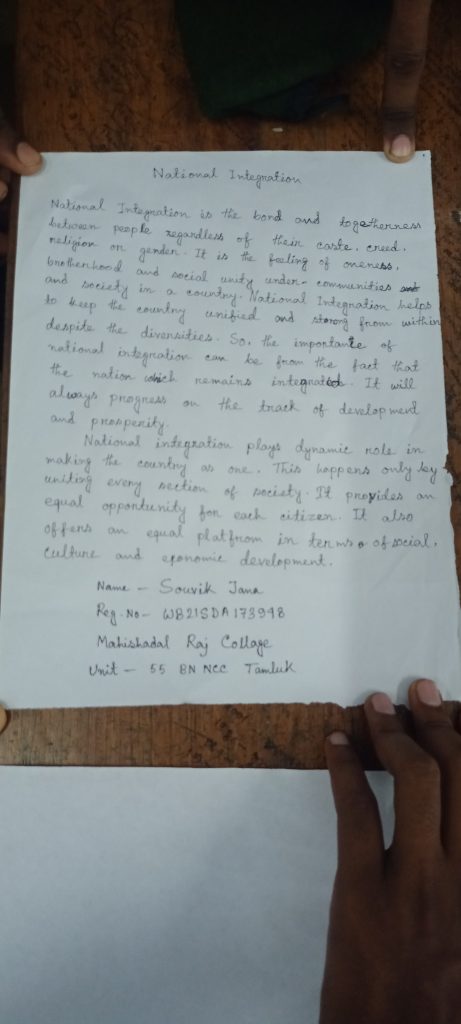 National Integration
National Integration is the bond and togetherness
between people regardless of their caste, creed,
religion or gender. It is the feeling of oneness,
brotherhood and social unity under communities
and society in a country. National Integration helps
to keep the country unified and strong from within
despite the diversities. So, the importante of
national integration can be from the fact that
the nation which remains integrated. It will
always progress on the track of development
and prosperity.
National integration plays dynamic role in
making the country as one. This happens only by
uniting every section of society. It provides an
equal opportunity for each citizen. It also
offers an equal platfrom in terms of social,
culture and economic development.
Name - Souvik Jana
Reg. No- WB21SDA173948
Mahishadal Raj Collage
Unit - 55 BN NCC Tamluk